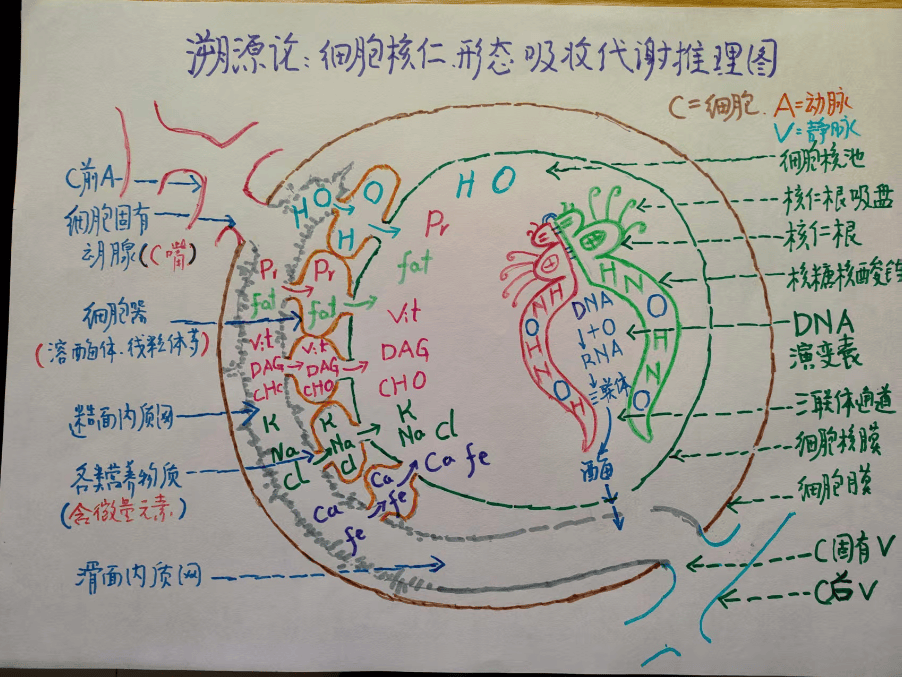 溯源论:细胞核仁.形态吸收代谢推理图
C=细胞. A=动脉
V=静脉
C前A
细胞固有
动腺(C嘴)
细胞器
(溶酶体.线粒体等)
粗面内质网
各类营养物质
(含微量元素)
滑面内质网
HO
O
H
Pr
Pr
fat
fat
Vit
Vit
DAG
DAG
CHO
K
K
Na
Na
Cl
Cl
Ca
Ca
fe
fe
H O
Pr
fat
Vit
DAG
CHO
K
Na Cl
Ca fe
H
N
O
H
N
O
H
N
O
H
N
O
H
DNA
↓+O
RNA
↓
三联体
酶
细胞核池
核仁根吸盘
核仁根
核糖核酸链
DNA
演变囊
三联体通道
细胞核膜
细胞膜
C固有V
C后V